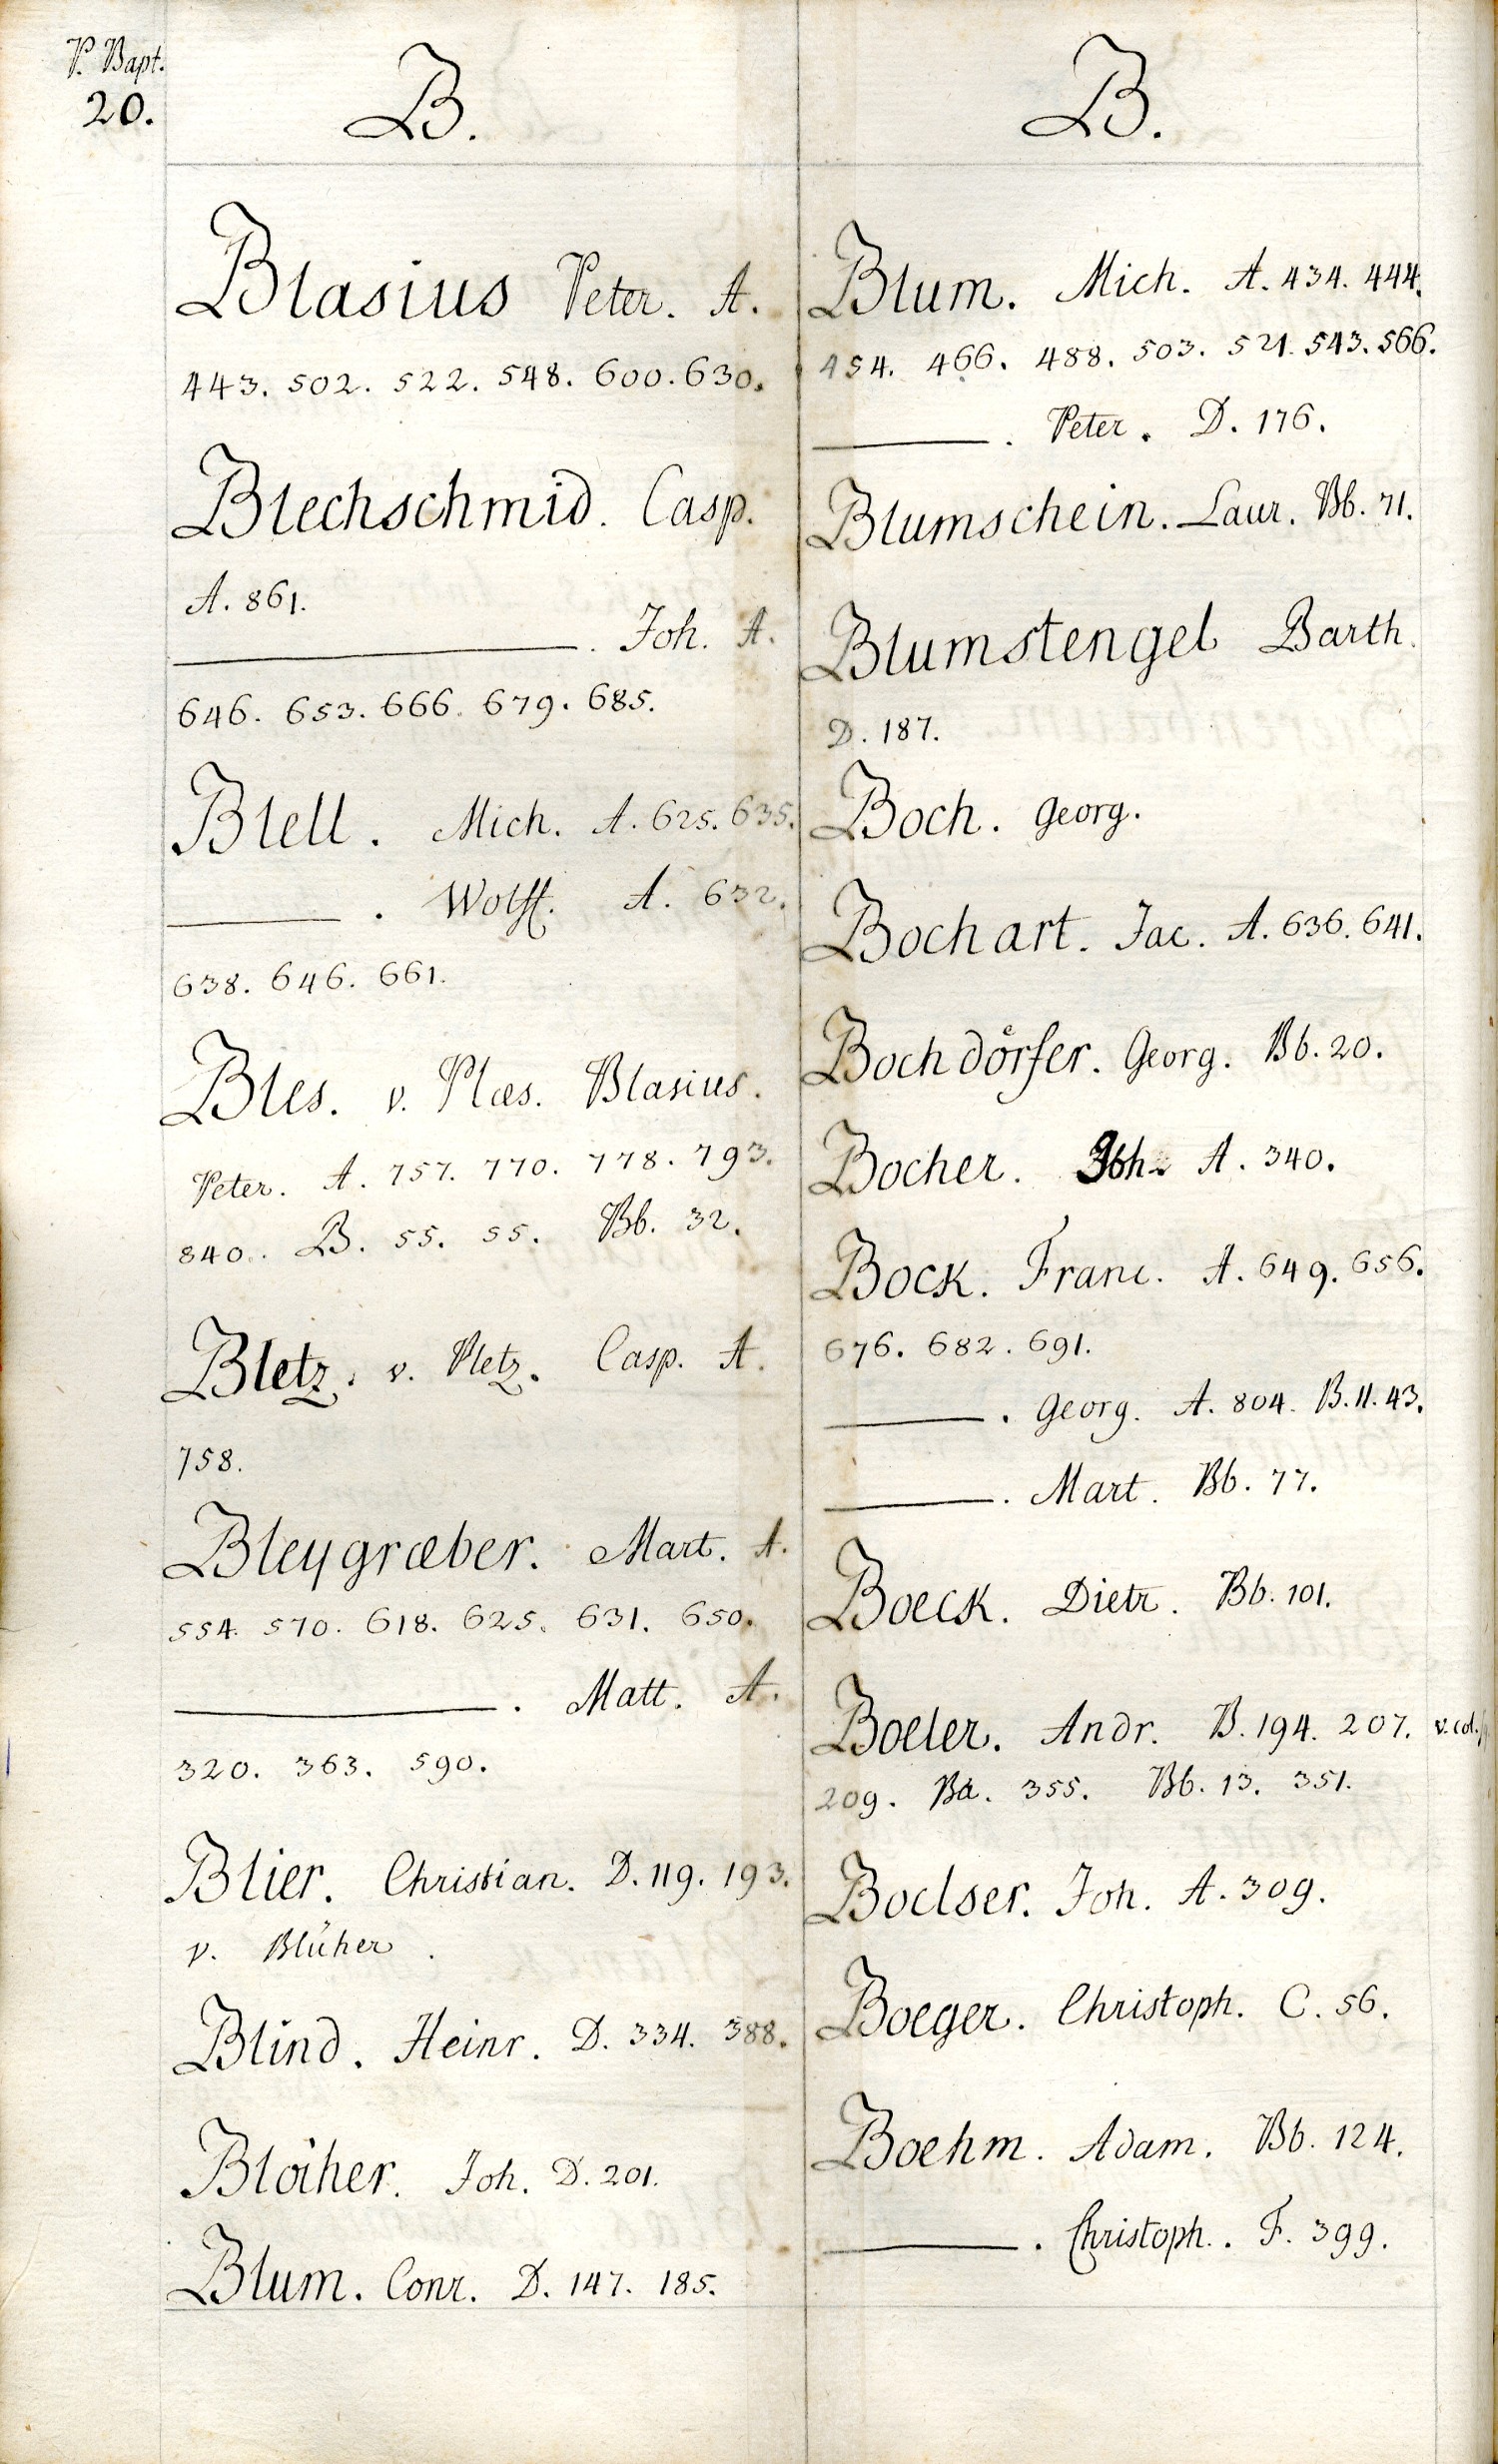 P. Bapt.
20.
B.
Blasius Peter. A.
443. 502. 522. 548. 600. 630.
Blechschmid. Casp.
A. 861.
———. Joh. A.
646. 653. 666. 679. 685.
Blell. Mich. A. 625. 635.
———. Wolff. A. 632.
638. 646. 661.
Bles. v. Plæs. Blasius.
Peter. A. 757. 770. 778. 793.
840. B. 55. 55. Bb. 32.
Bletz. v. Pletz. Casp. A.
758.
Bleygræber. Mart. A.
554. 570. 618. 625. 631. 650.
———. Matt. A.
320. 363. 590.
Blier. Christian. D. 119. 193.
v. Blüher.
Blind. Heinr. D. 334. 388.
Joh. D. 201.
Blum. Conr. D. 147. 185.
B.
Blum. Mich. A. 434. 444.
454. 466. 488. 503. 521. 543. 566.
———. Peter. D. 176.
Blumschein. Laur. Bb. 71.
Blumstengel Barth.
D. 187.
Boch. Georg.
Bochart. Jac. A. 636. 641.
Bochdörfer. Georg. Bb. 20.
Bocher. Joh. A. 340.
Bock. Franc. A. 649. 656.
676. 682. 691.
———. Georg. A. 804. B. 11. 43.
———. Mart. Bb. 77.
Boeck. Dietr. Bb. 101.
Boeler. Andr. B. 194. 207. v. col.
209. Ba. 355. Bb. 13. 351.
Boelser. Joh. A. 309.
Boeger. Christoph. C. 56.
Boehm. Adam. Bb. 124.
———. Christoph. F. 399.